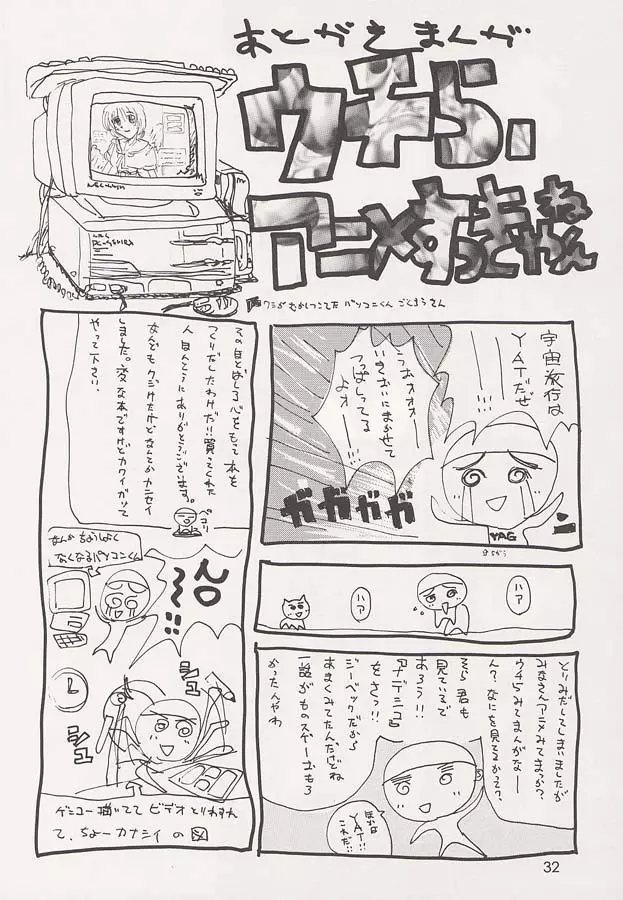 あとがきまんが
ウチら、
アニメすっきやねん
ワシが むかしつこてた パソコンくん ごくろうさん
宇宙旅行は
YATだぜ
!!!
うおオオオーー
いきおいにまかせて
つっぱしってる
よォーー
ガガガガ
YAG
ハァ
ハァ
とりみだしてしまいましたが
みなさんアニメみてまっか?
ウチらみてまんがなー
ん?なにを見てるかって?
そら君も
見ているで
あろう!!
ナデシコ
をさっ!!
ジーベックだから
あまくみてたんだけどね
一話がものスゲーおもろ
かったんやわ
ほかは
YAT!!
これだ!!
その目とばしる心をもって本を
つくりだしたわけだ!!買ってくれた
人 ほんとうにありがとうございます。
なんどもクジけたけどなんとかカンセイ
しました。変な本ですけどカワイがって
やって下さい。
ペコリ
なんか ちょうしよく
なくなるパソコンくん
シュ
シュ
ゲンコー描いてて ビデオ とりわすれ
て、ちょーカナシイ の図
32